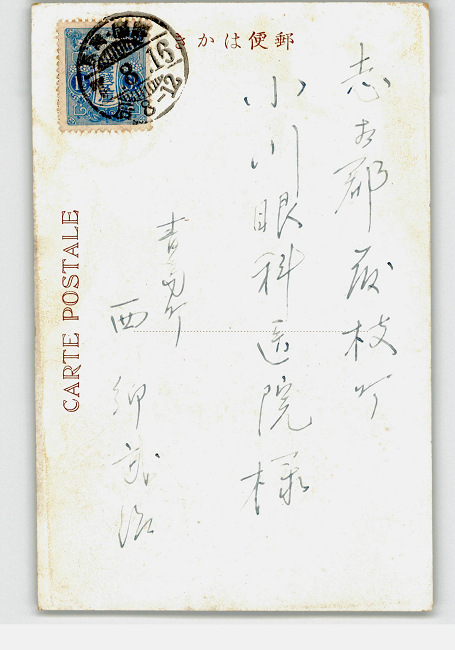 郵便はかき
CARTE POSTALE
8.16
8-12
志太郡藤枝町
小川眼科医院様
青島町
西郷武治